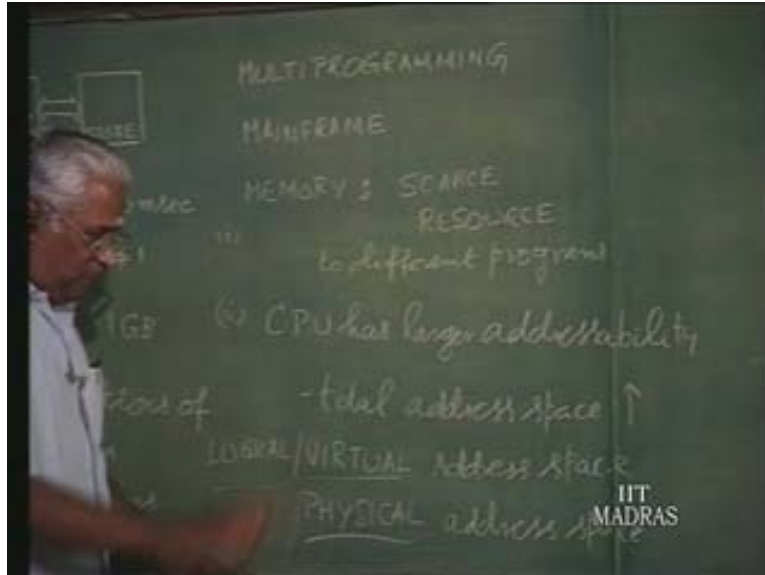 MULTIPROGRAMMING
MAINFRAME
msec MEMORY: SCARCE
RESOURCE
to different programs
1GB (i) CPU has larger addressability
of - total address space ↑
LOGICAL/VIRTUAL Address space
PHYSICAL address space
IIT
MADRAS